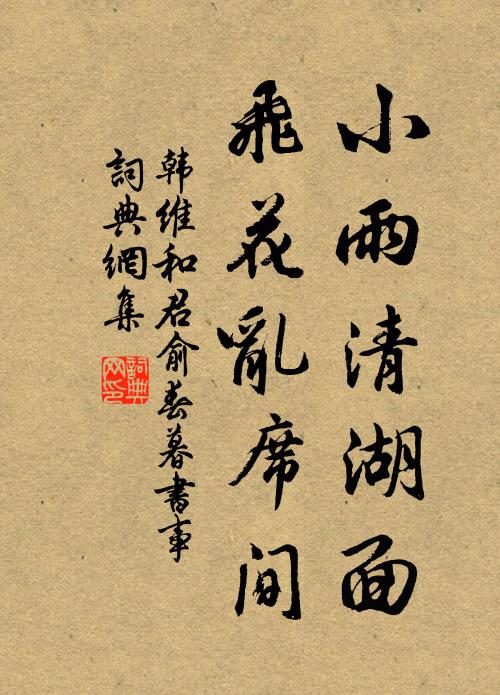 小雨清湖面
飛花亂席间
韩維和君俞春暮書事
詞典網集
詞典网印